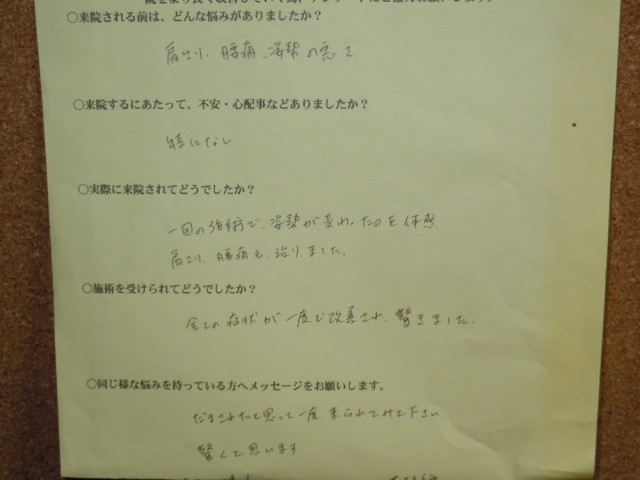 院をより良く改善していく為、アンケートにご協力お願いします。
○来院される前は、どんな悩みがありましたか？
肩こり、腰痛、姿勢の悪さ
○来院するにあたって、不安・心配事などありましたか？
特になし
○実際に来院されてどうでしたか？
一回の施術で、姿勢が変わったのを体感
肩こり、腰痛も治りました。
○施術を受けられてどうでしたか？
全ての症状が一度で改善され、驚きました。
○同じ様な悩みを持っている方へメッセージをお願いします。
だまされたと思って一度、来られてみて下さい
驚くと思います